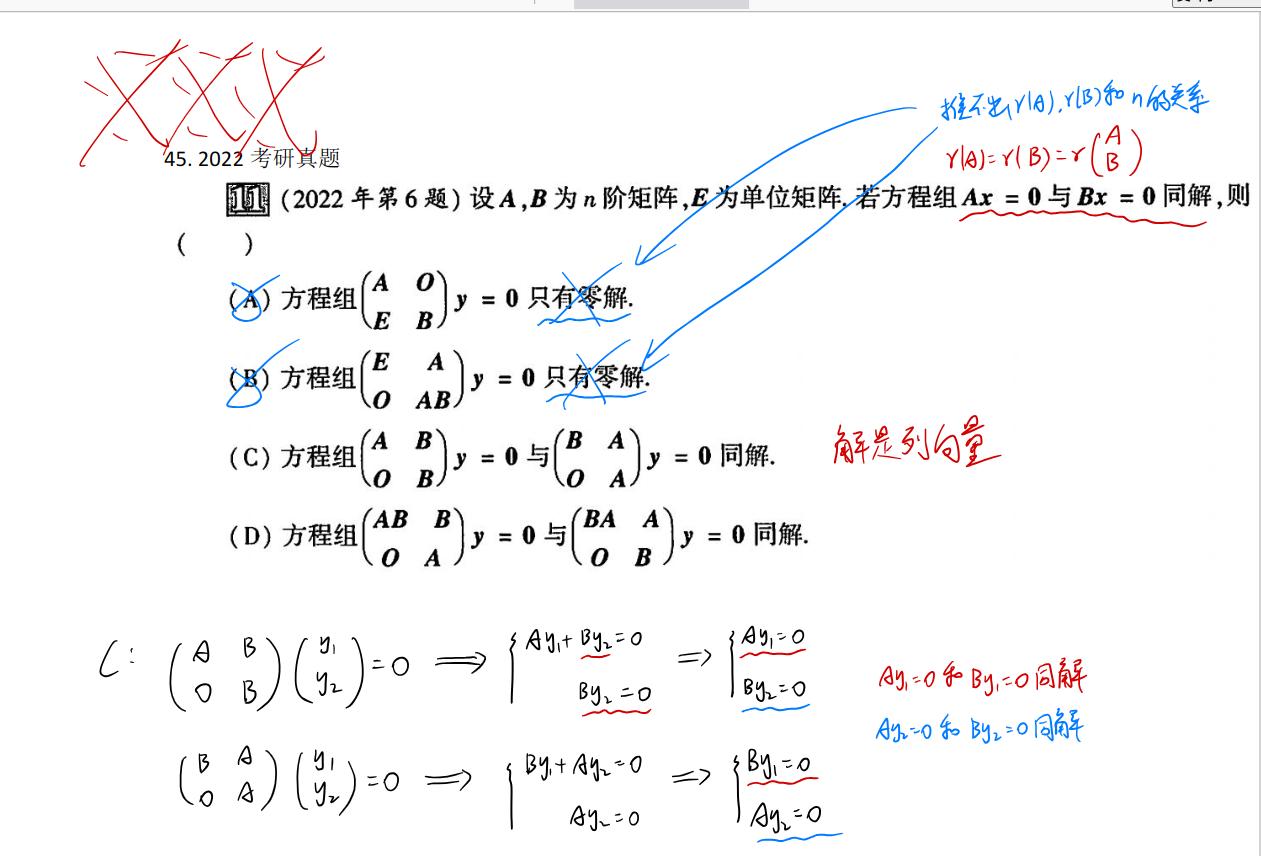 推不出r(A),r(B)和n的关系
r(A)=r(B)=r(A B)
45. 2022 考研真题
11 (2022年第6题)设A,B为n阶矩阵,E为单位矩阵.若方程组Ax = 0与Bx = 0同解,则
( )
(A) 方程组(A O E B)y = 0只有零解.
(B) 方程组(E A O AB)y = 0只有零解.
(C) 方程组(A B O B)y = 0与(B A O A)y = 0同解.
解是列向量
(D) 方程组(AB B O A)y = 0与(BA A O B)y = 0同解.
C: (A B 0 B)(y₁ y₂)=0 ⇒ { Ay₁+By₂=0 By₂=0 ⇒ { Ay₁=0 By₂=0
Ay₁=0 和 By₁=0 同解
Ay₂=0 和 By₂=0 同解
(B A 0 A)(y₁ y₂)=0 ⇒ { By₁+Ay₂=0 Ay₂=0 ⇒ { By₁=0 Ay₂=0